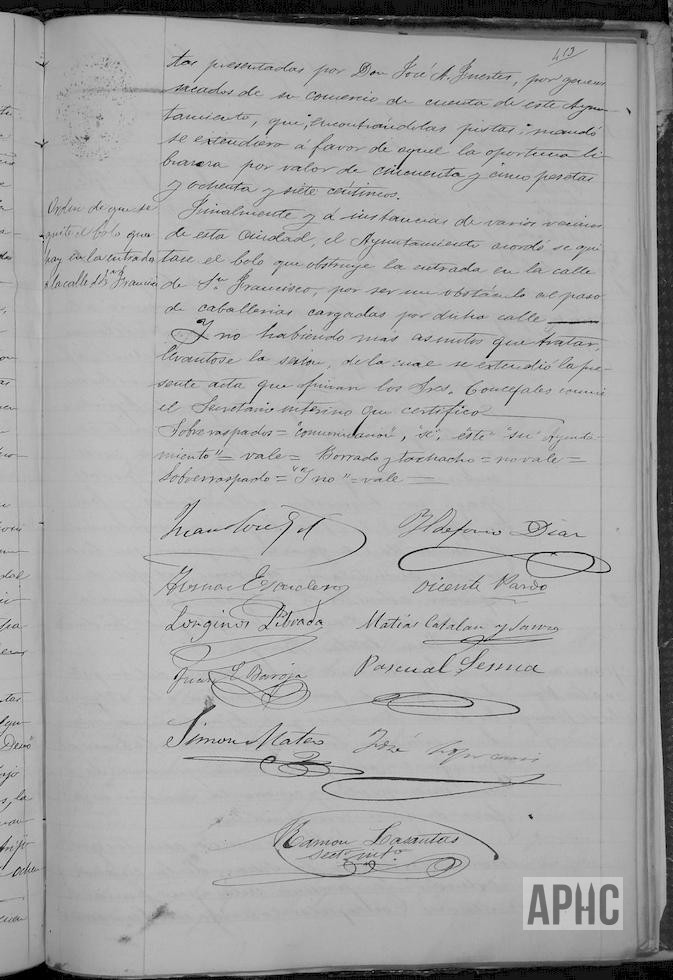 413
tas presentadas por Don José A. Fuertes, por géneros
sacados de su comercio de cuenta de este Ayun-
tamiento, que, encontrándolas justas, mandó
se extendiera á favor de aquel la oportuna li-
branza por valor de cincuenta y cinco pesetas
y ochenta y siete céntimos.
Orden de que se
quite el bolo que
hay en la entrada
a la calle de Sn. Francisco
Finalmente y á instancias de varios vecinos
de esta Ciudad, el Ayuntamiento acordó se qui
tase el bolo que obstruye la entrada en la calle
de Sn. Francisco, por ser un obstáculo al paso
de caballerías cargadas por dicha calle
Y no habiendo más asuntos que tratar,
levantose la sesión, de la cual se extendió la pre-
sente acta que firman los Sres. Concejales conmigo
el Secretario interino que certifico
Sobrerraspados = "comunicacion", "se", "este" "su" Ayunta-
miento" = vale = Borrado y tachado = no vale =
Sobrerraspado = "Y no" = vale
Ildefonso Diaz
Escudero
Vicente Pardo
Longinos Librada
Matias Catalan y
Juan E Baroja
Pascual Sesma
Simon Mateo
José
Ramon Lasantas
secro. into.
APHC